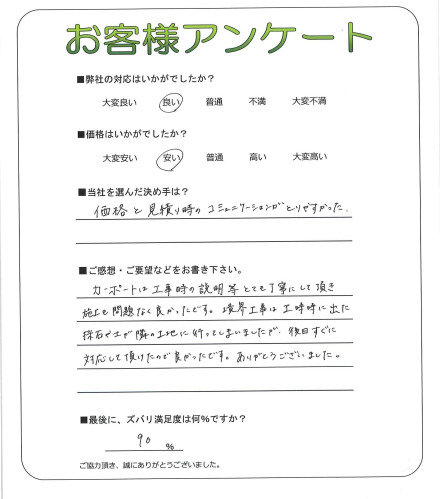 お客様アンケート
■弊社の対応はいかがでしたか?
大変良い 良い 普通 不満 大変不満
■価格はいかがでしたか?
大変安い 安い 普通 高い 大変高い
■当社を選んだ決め手は?
価格と見積り時のコミュニケーションがとりやすかった.
■ご感想・ご要望などをお書き下さい。
カーポートは工事時の説明等とても丁寧にして頂き
施工も問題なく良かったです。境界工事は工事時に出た
採石や土が隣の土地に行ってしまいましたが、後日すぐに
対応して頂けたので良かったです。ありがとうございました。
■最後に、ズバリ満足度は何%ですか?
90 %
ご協力頂き、誠にありがとうございました。